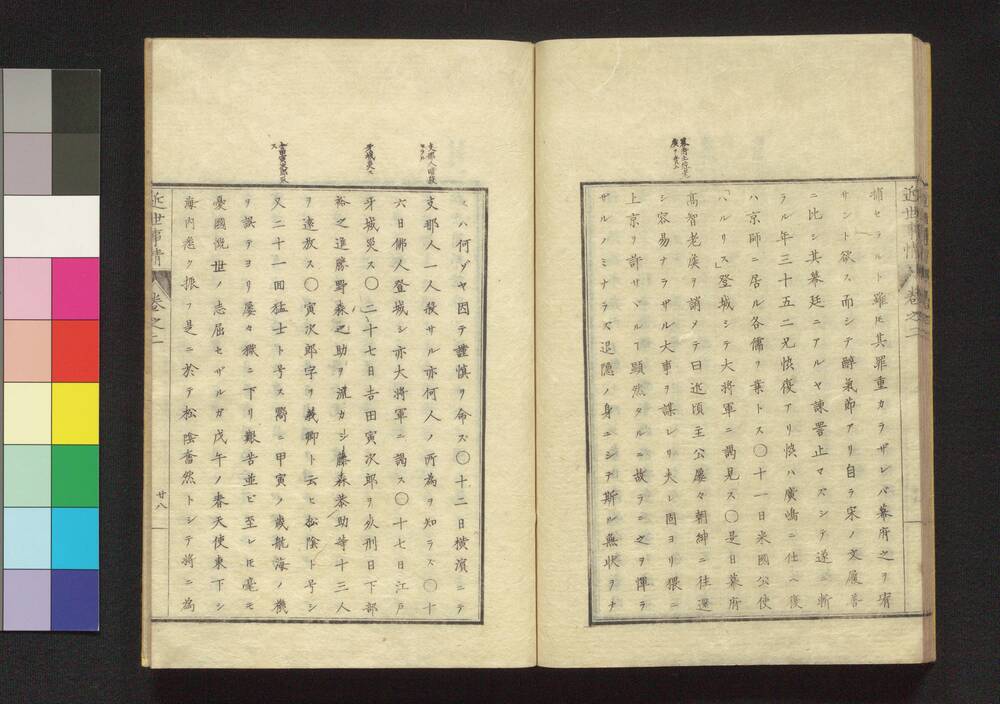 近世事情 巻之二
捕セラルト雖𪜈其罪重カラザレバ幕府之ヲ宥
サント欲ス而シテ醉氣節アリ自ラ宋ノ文履善
ニ比シ其幕廷ニアルヤ諫詈止マズシテ遂ニ斬
ラル年三十五二兄快復アリ快ハ廣嶋ニ仕ヘ復
ハ京師ニ居ル各儒ヲ業トス〇十一日米國公使
「ハルリス」登城シテ大將軍ニ謁見ス〇是日幕府
高智老侯ヲ誚メテ曰近頃主公屡々朝紳ニ往還
シ容易ナラザル大事ヲ謀レリ夫レ固ヨリ猥ニ
上京ヲ許サヾルヿ顕然タルニ故ラニ之ヲ憚ラ
ザルノミナラズ退隠ノ身ニシテ斯ル無状ヲナ
スハ何ゾヤ因テ謹慎ヲ命ズ〇十二日横濱ニテ
支那人暗殺セラル
支那人一人殺サル亦何人ノ所為ヲ知ラズ〇十
六日佛人登城シ亦大將軍ニ謁ス〇十七日江戸
牙城災ス
牙城災ス〇二十七日吉田寅次郎ヲ死刑日下部
裕之進勝野森之助ヲ流カシ藤森恭助等十三人
ヲ遠放ス〇寅次郎字ヲ義卿ト云ヒ松陰ト号シ
又二十一回猛士ト号ス嚮ニ甲寅ノ歳航海ノ機
ヲ誤テヨリ屡々獄ニ下リ艱苦並ビ至レ𪜈毫モ
憂國慨世ノ志屈セザルガ戊午ノ春天使東下シ
海内悉ク振フ是ニ於テ松陰奮然トシテ將ニ為
近世事情 巻之二 廿八